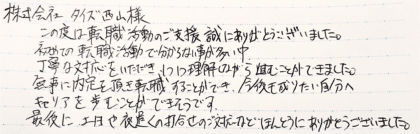 株式会社 タイズ 西山様
この度は転職活動のご支援誠にありがとうございました。
初めての転職活動で分からない事が多い中
丁寧な対応をいただき、1つ1つ理解しながら進むことができました。
無事に内定を頂き転職することができ、今後も成りたい自分へ
キャリアを歩むことができそうです。
最後に、土日や夜遅くの打合せのご対応などほんとうにありがとうございました。